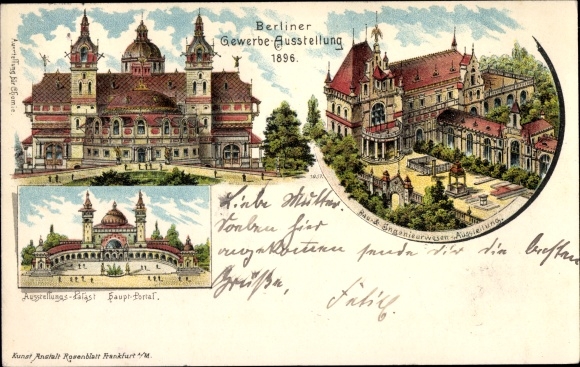 Berliner
Gewerbe-Ausstellung
1896.
Ausstellung für Chemie
Bau- & Ingenieurwesen-Ausstellung.
Liebe Mutter.
Soeben hier
angekommen sende dir die besten
Grüße,
Ausstellungs-Palast Haupt-Portal.
Kunst Anstalt Rosenblatt Frankfurt a/M.